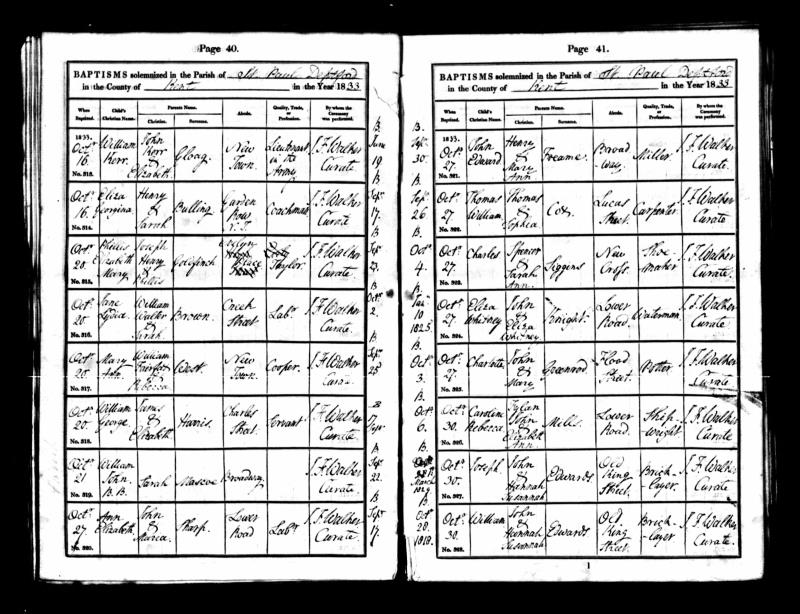 Page 40.
BAPTISMS solemnized in the Parish of St. Paul Deptford
in the County of Kent in the Year 1833
When Baptized. Child's Christian Name. Parents Name. Christian. Surname. Abode. Quality, Trade, or Profession. By whom the Ceremony was performed.
1833. Octr. 16. No. 313. William Kerr. John Kerr & Elizabeth. Gloag. New Town. Lieutenant in the Army J. F. Walker Curate B. June 19
Octr. 16. No. 314. Eliza Georgina Henry & Sarah Bulling Garden Row N. T. Coachman J. F. Walker Curate B. Sepr. 17.
Octr. 20. No. 315. Phillis Elizabeth Mary Joseph Henry & Phillis Goldfinch Evelyn Place Taylor. J. F. Walker Curate. B Sepr.
Octr. 20. No. 316. Jane Lydia William Walter & Sarah. Brown. Creek Street Labr. J. F. Walker Curate. B Octr. 2.
Octr. 20. No. 317. Mary Ann. William & Rebecca West. New Town. Cooper. J. F. Walker Curate. B. Sepr. 25
Octr. 20. No. 318. William George. James & Elizabeth Harris. Charles Street. Servant J. F. Walker Curate. B 17 Sepr
Octr. 21 No. 319. William John. B. B. Sarah Mascoe Broadway. J. F. Walker Curate. Sepr. 22.
Octr. 27 No. 320. Ann Elizabeth. John & Maria. Sharp. Lower Road Labr. J. F. Walker Curate. B Sepr. 17.
Page 41.
BAPTISMS solemnized in the Parish of St. Paul Deptford
in the County of Kent in the Year 1833
When Baptized. Child's Christian Name. Parents Name. Christian. Surname. Abode. Quality, Trade, or Profession. By whom the Ceremony was performed.
B. Sepr. 30. 1833. Octr. 27. No. 321. John Edward Henry & Mary Ann Freame. Broad way. Miller. J. F. Walker Curate.
B. Sepr. 26 Octr. 27. No. 322. Thomas William. Thomas & Sophia Cox. Lucas Street. Carpenter. J. F. Walker Curate
B. Octr. 4. Octr. 27. No. 323. Charles Spencer & Sarah Ann. Siggens New Cross. Shoe maker J. F. Walker Curate.
B. 10 1825. Octr. 27. No. 324. Eliza Whitney John & Eliza Whitney Knight. Lower Road. Waterman. J. F. Walker Curate.
B. Octr. 3. Octr. 27. No. 325. Charlotte John & Mary Greenrod Flood Street. Potter J. F. Walker Curate
B. Octr. 6. Octr. 30. No. 326. Caroline Rebecca John & Elizabeth Ann Mills. Lower Road. Ship wright J. F. Walker Curate
B. March 1829 Octr. 30. No. 327. Joseph. John & Hannah Susannah Edwards Old King Street. Brick layer. J. F. Walker Curate
B Octr. 28. 1818. Octr. 30. No. 328. William John & Hannah Susannah Edwards Old King Street. Brick layer J. F. Walker Curate.
1